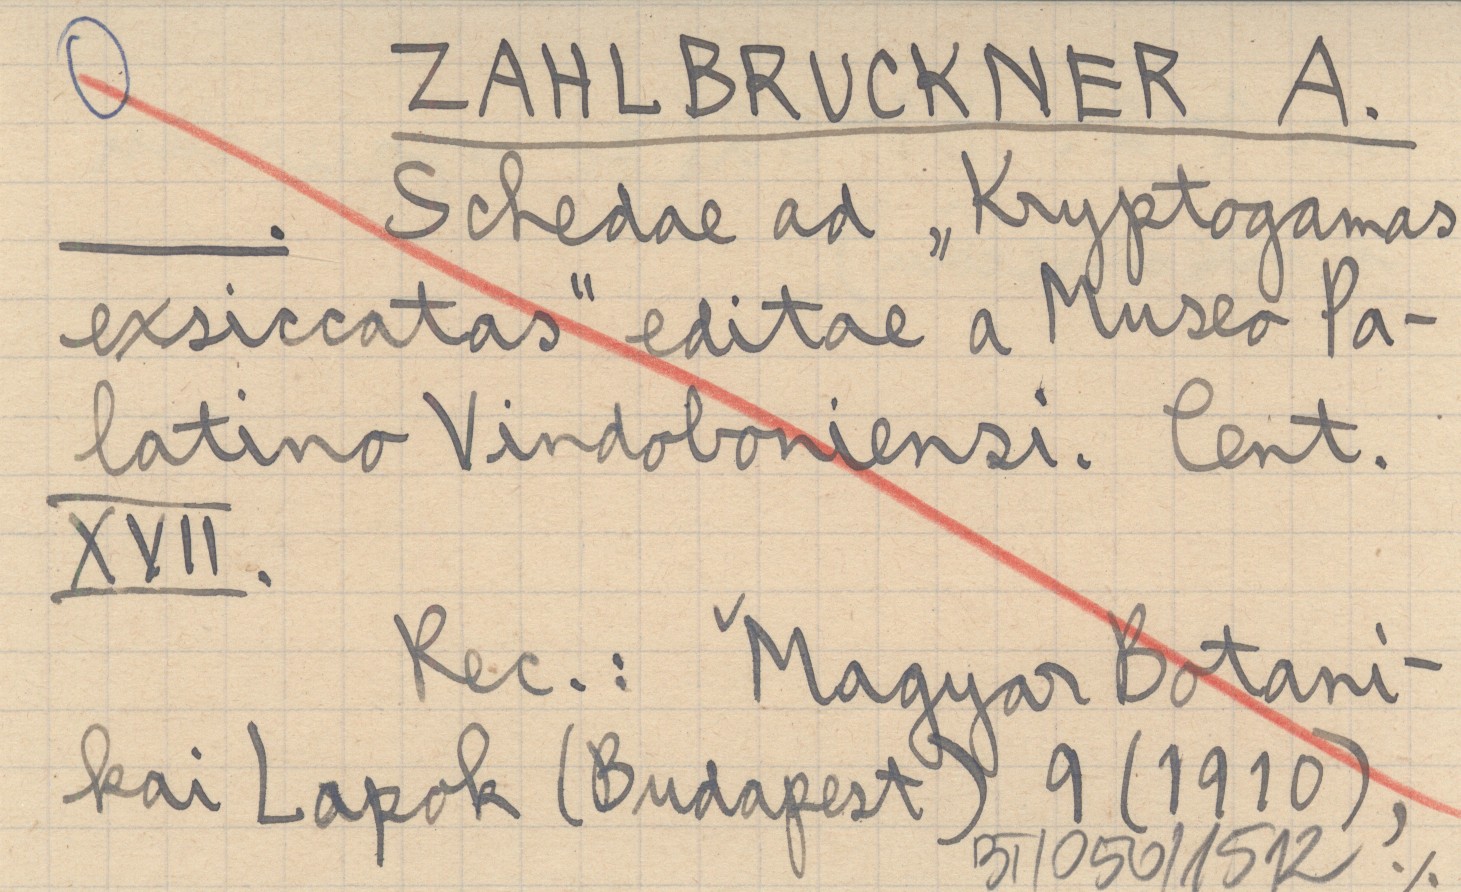 ZAHLBRUCKNER A.
———. Schedae ad „Kryptogamas
exsiccatas" editae a Museo Pa-
latino Vindoboniensi. Cent.
XVII.
Rec.: Magyar Botani-
kai Lapok (Budapest) 9 (1910),
BT/050/1512 ./.